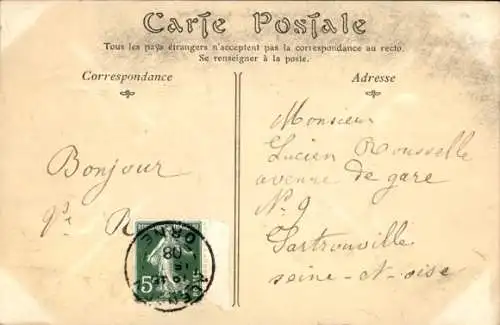 Carte Postale
Tous les pays étrangers n'acceptent pas la correspondance au recto.
Se renseigner à la poste.
Correspondance
Adresse
Bonjour
R
Monsieur
Lucien Rousselle
avenue de gare
N° 9
Sartrouville
seine-et-oise
5
ORNE
08